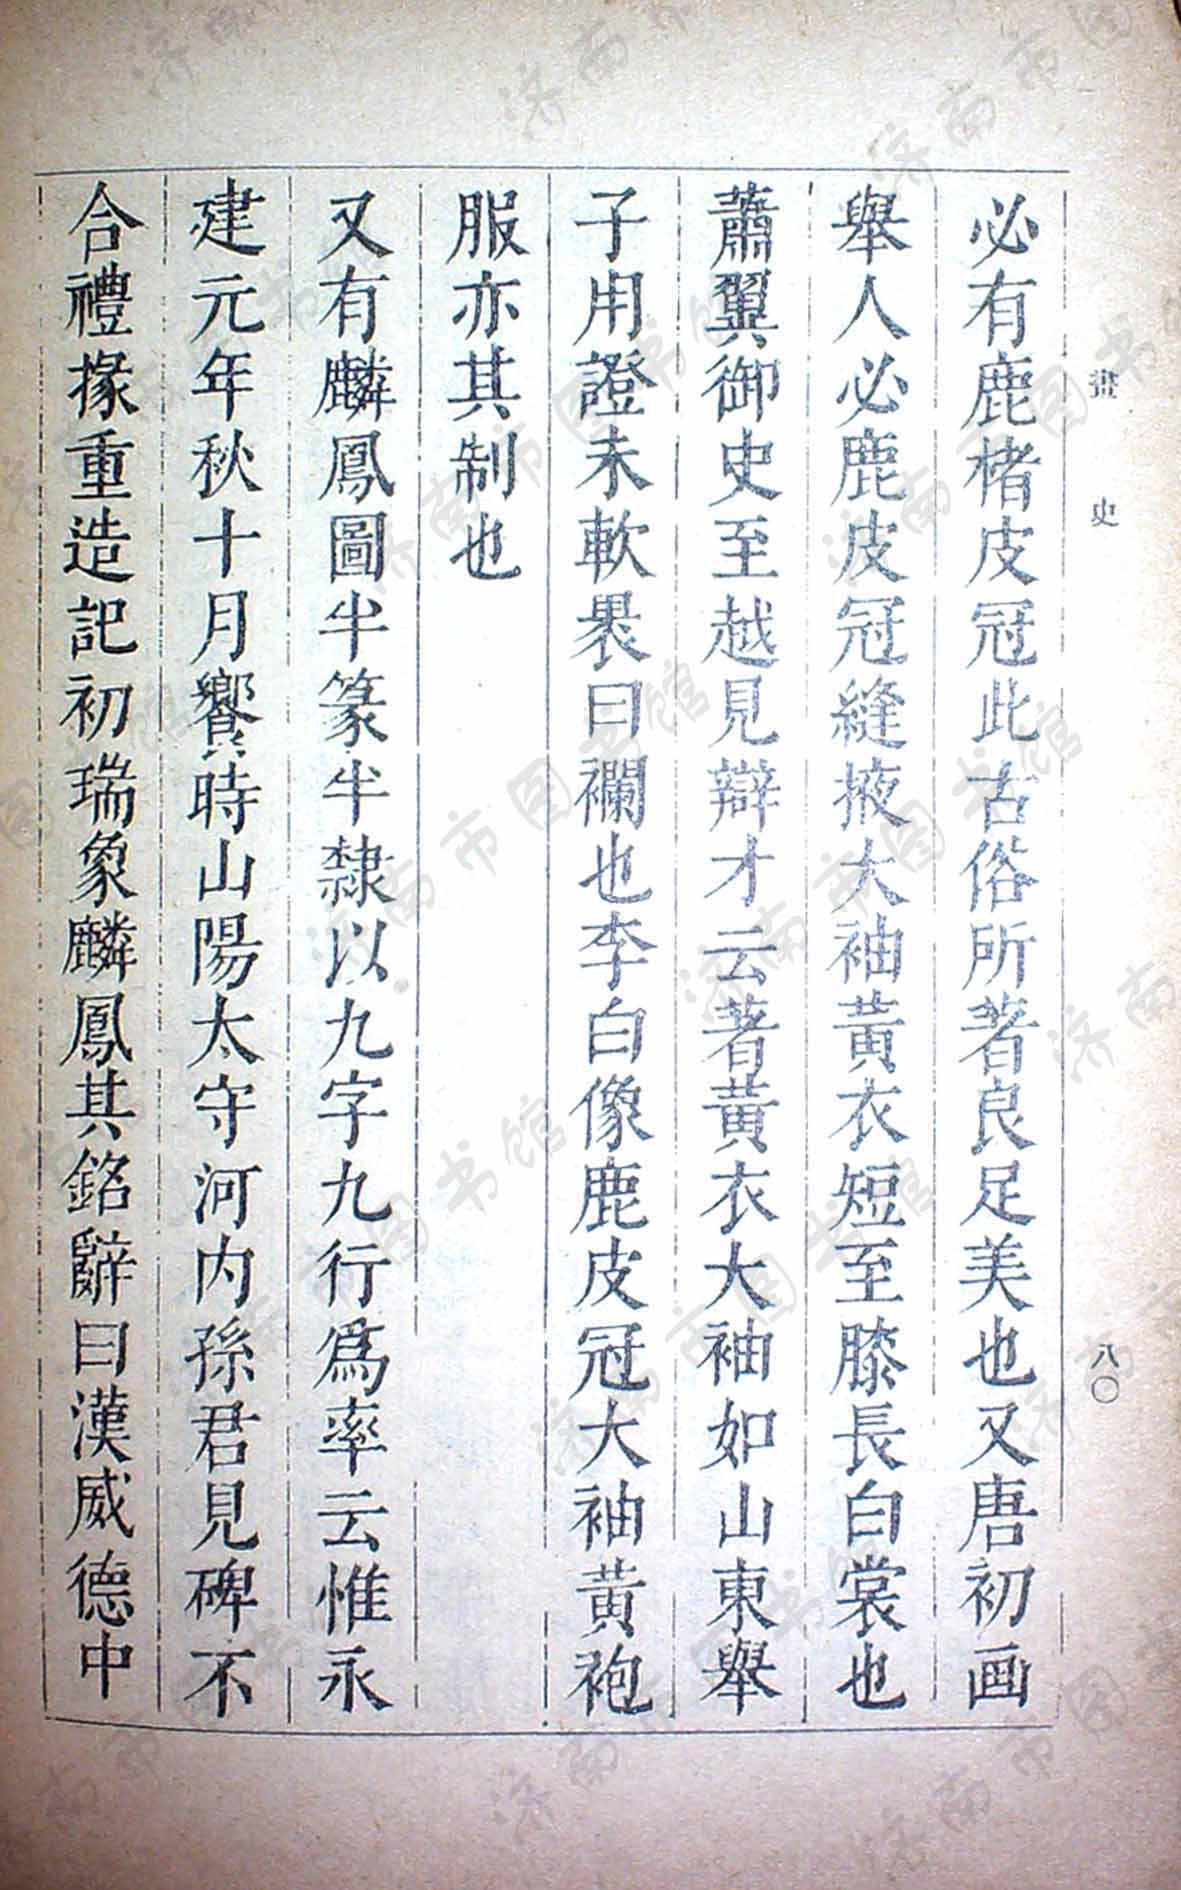 畫史
八〇
必有鹿楮皮冠此古俗所著良足美也又唐初画
舉人必鹿皮冠縫掖大袖黃衣短至膝長白裳也
蕭翼御史至越見辯才云著黃衣大袖如山東舉
子用證未軟裹曰襴也李白像鹿皮冠大袖黃袍
服亦其制也
又有麟鳳圖半篆半隸以九字九行爲率云惟永
建元年秋十月饗時山陽太守河内孫君見碑不
合禮掾重造記初瑞象麟鳳其銘辭曰漢威德中
济南市图书馆